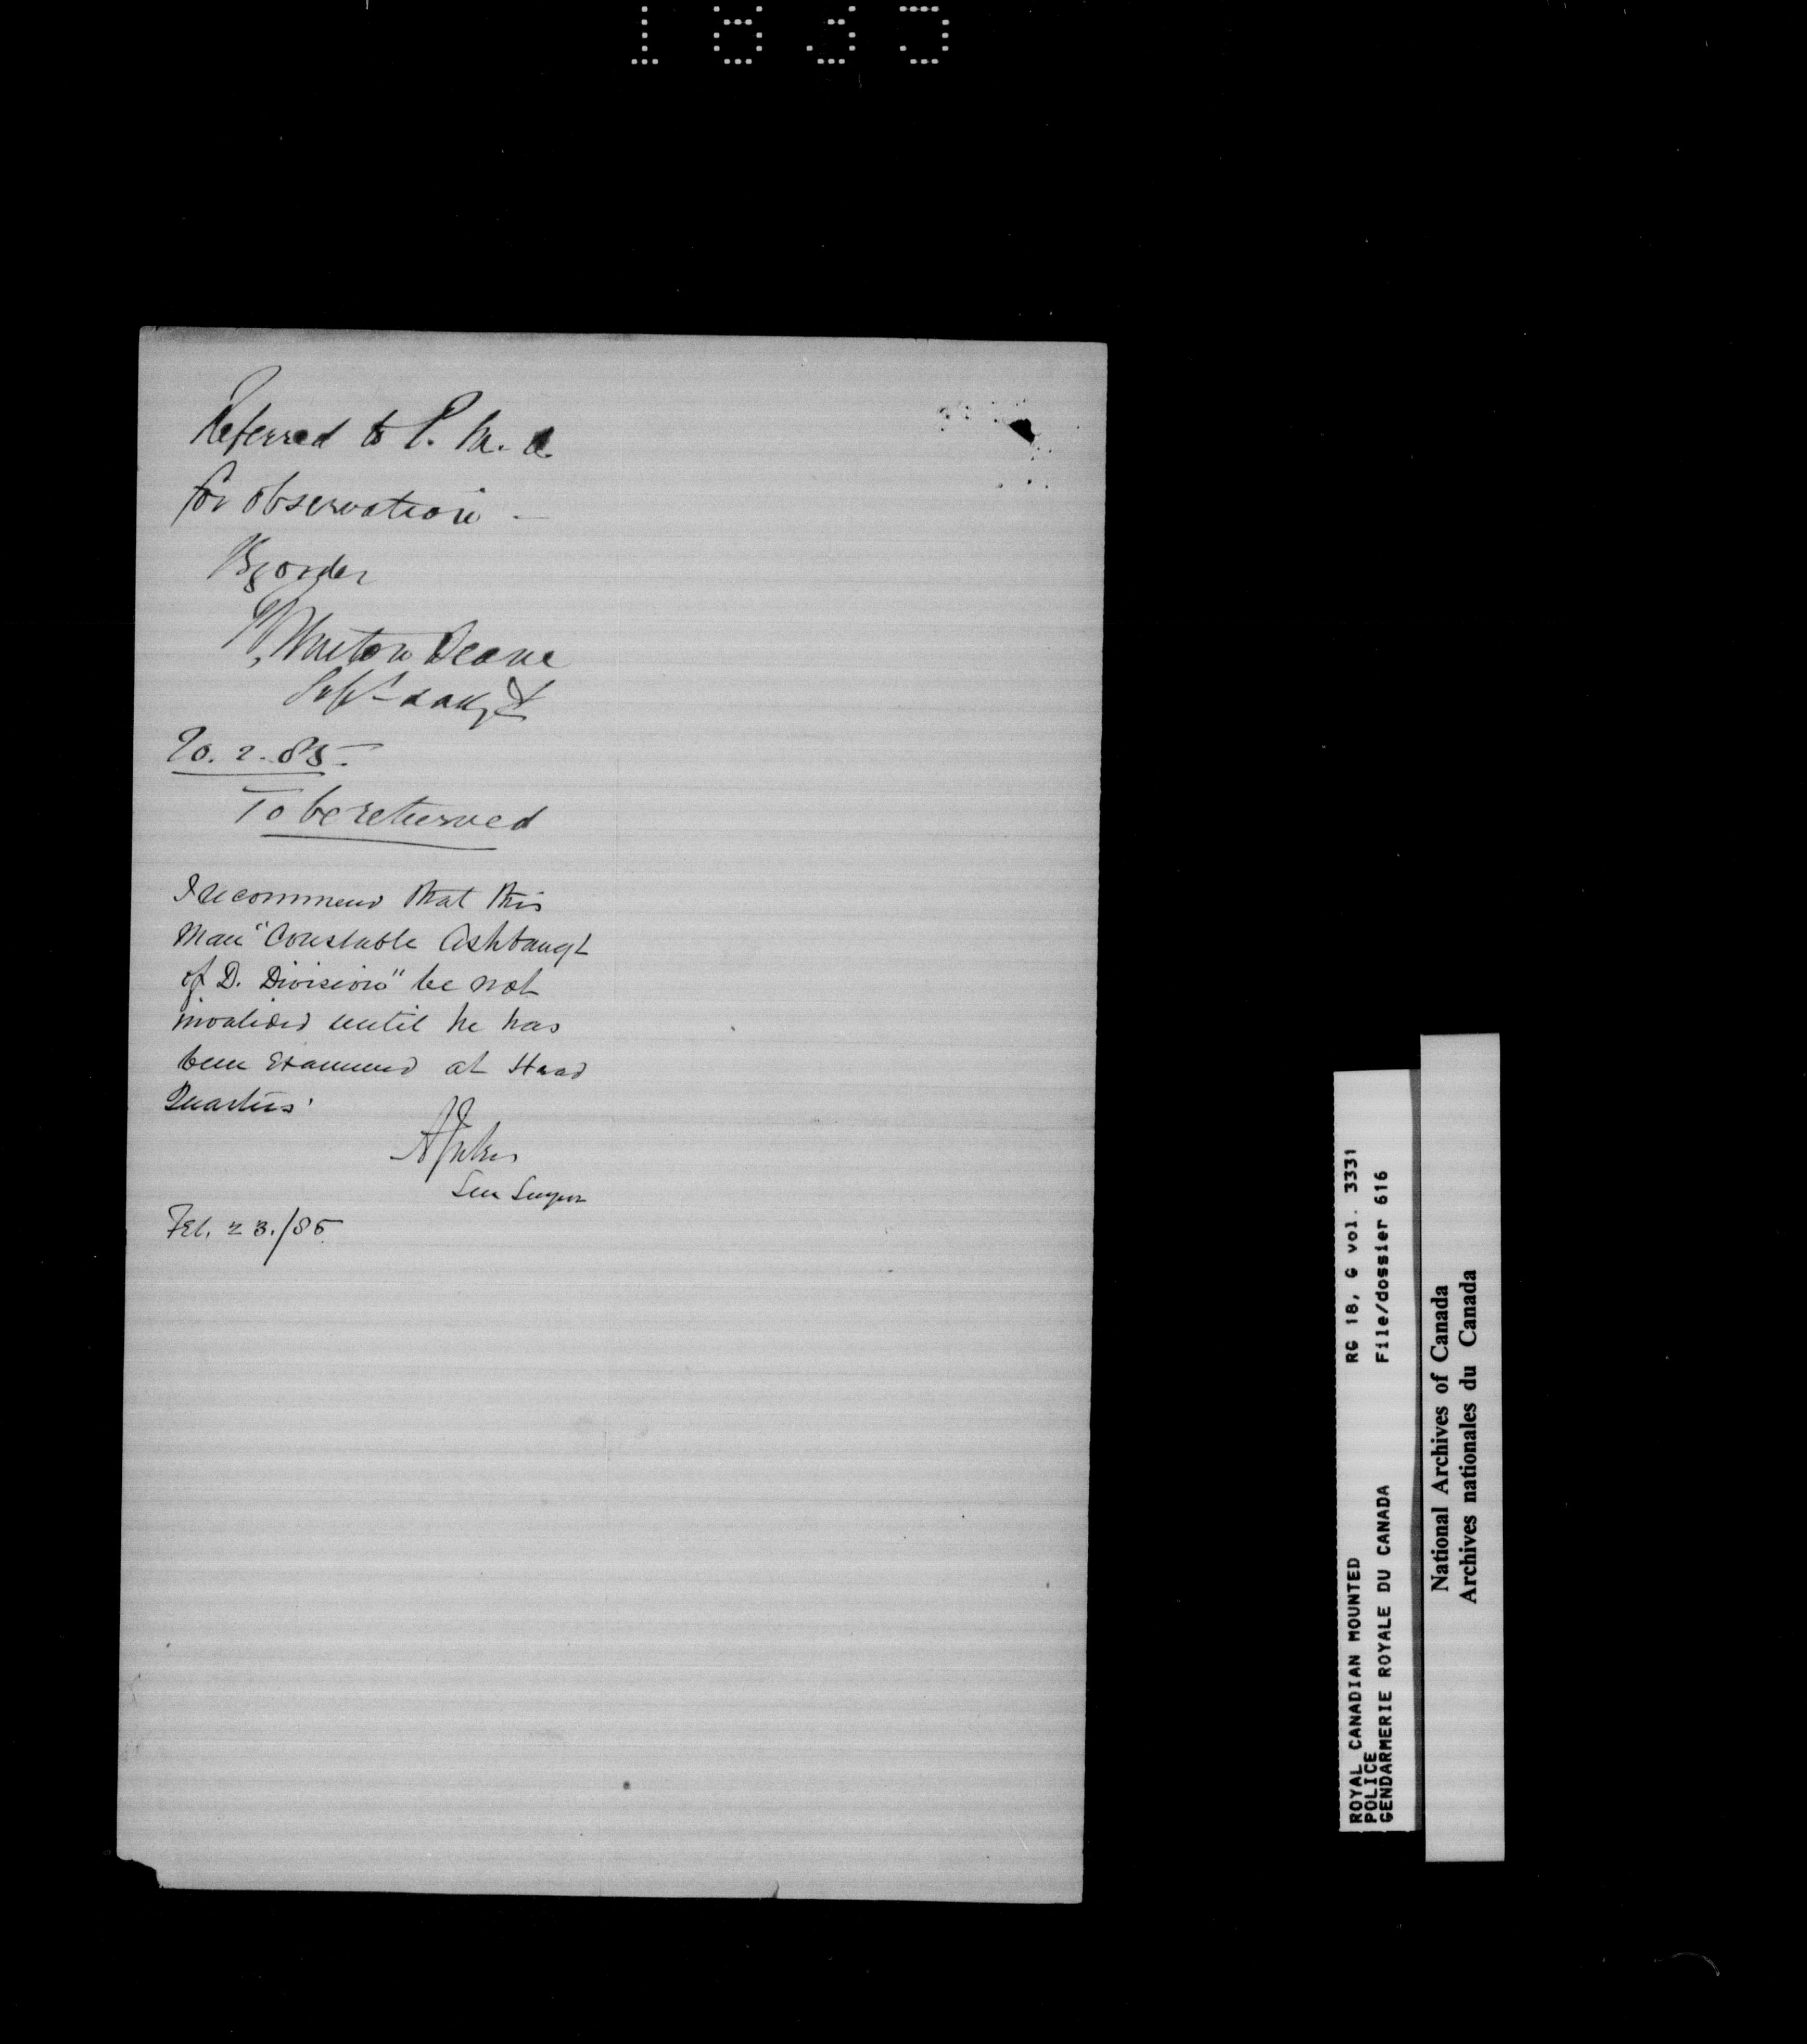 Referred to P. M. O.
for observation —
By order
R Burton Deane
Supt & Adjt
20. 2. 85
To be returned
I recommend that this
Man "Constable Ashbaugh
of D. Division" be not
invalided until he has
been Examined at Head
Quarters.
A Jukes
Sen Surgeon
Feb. 23./85
ROYAL CANADIAN MOUNTED RG 18, G vol. 3331
POLICE
GENDARMERIE ROYALE DU CANADA File/dossier 616
National Archives of Canada
Archives nationales du Canada